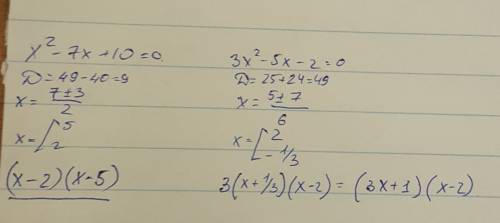 x² - 7x + 10 = 0
D = 49 - 40 = 9
x = (7 ± 3)/2
x = [5
2
(x - 2)(x - 5)
3x² - 5x - 2 = 0
D = 25 + 24 = 49
x = (5 ± 7)/6
x = [2
- 1/3
3(x + 1/3)(x - 2) = (3x + 1)(x - 2)